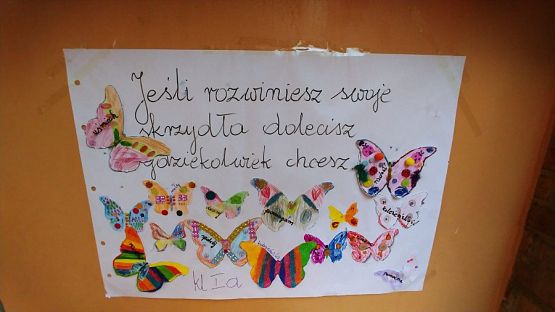 Jeśli rozwiniesz swoje
skrzydła dolecisz
gdziekolwiek chcesz
kl Ia